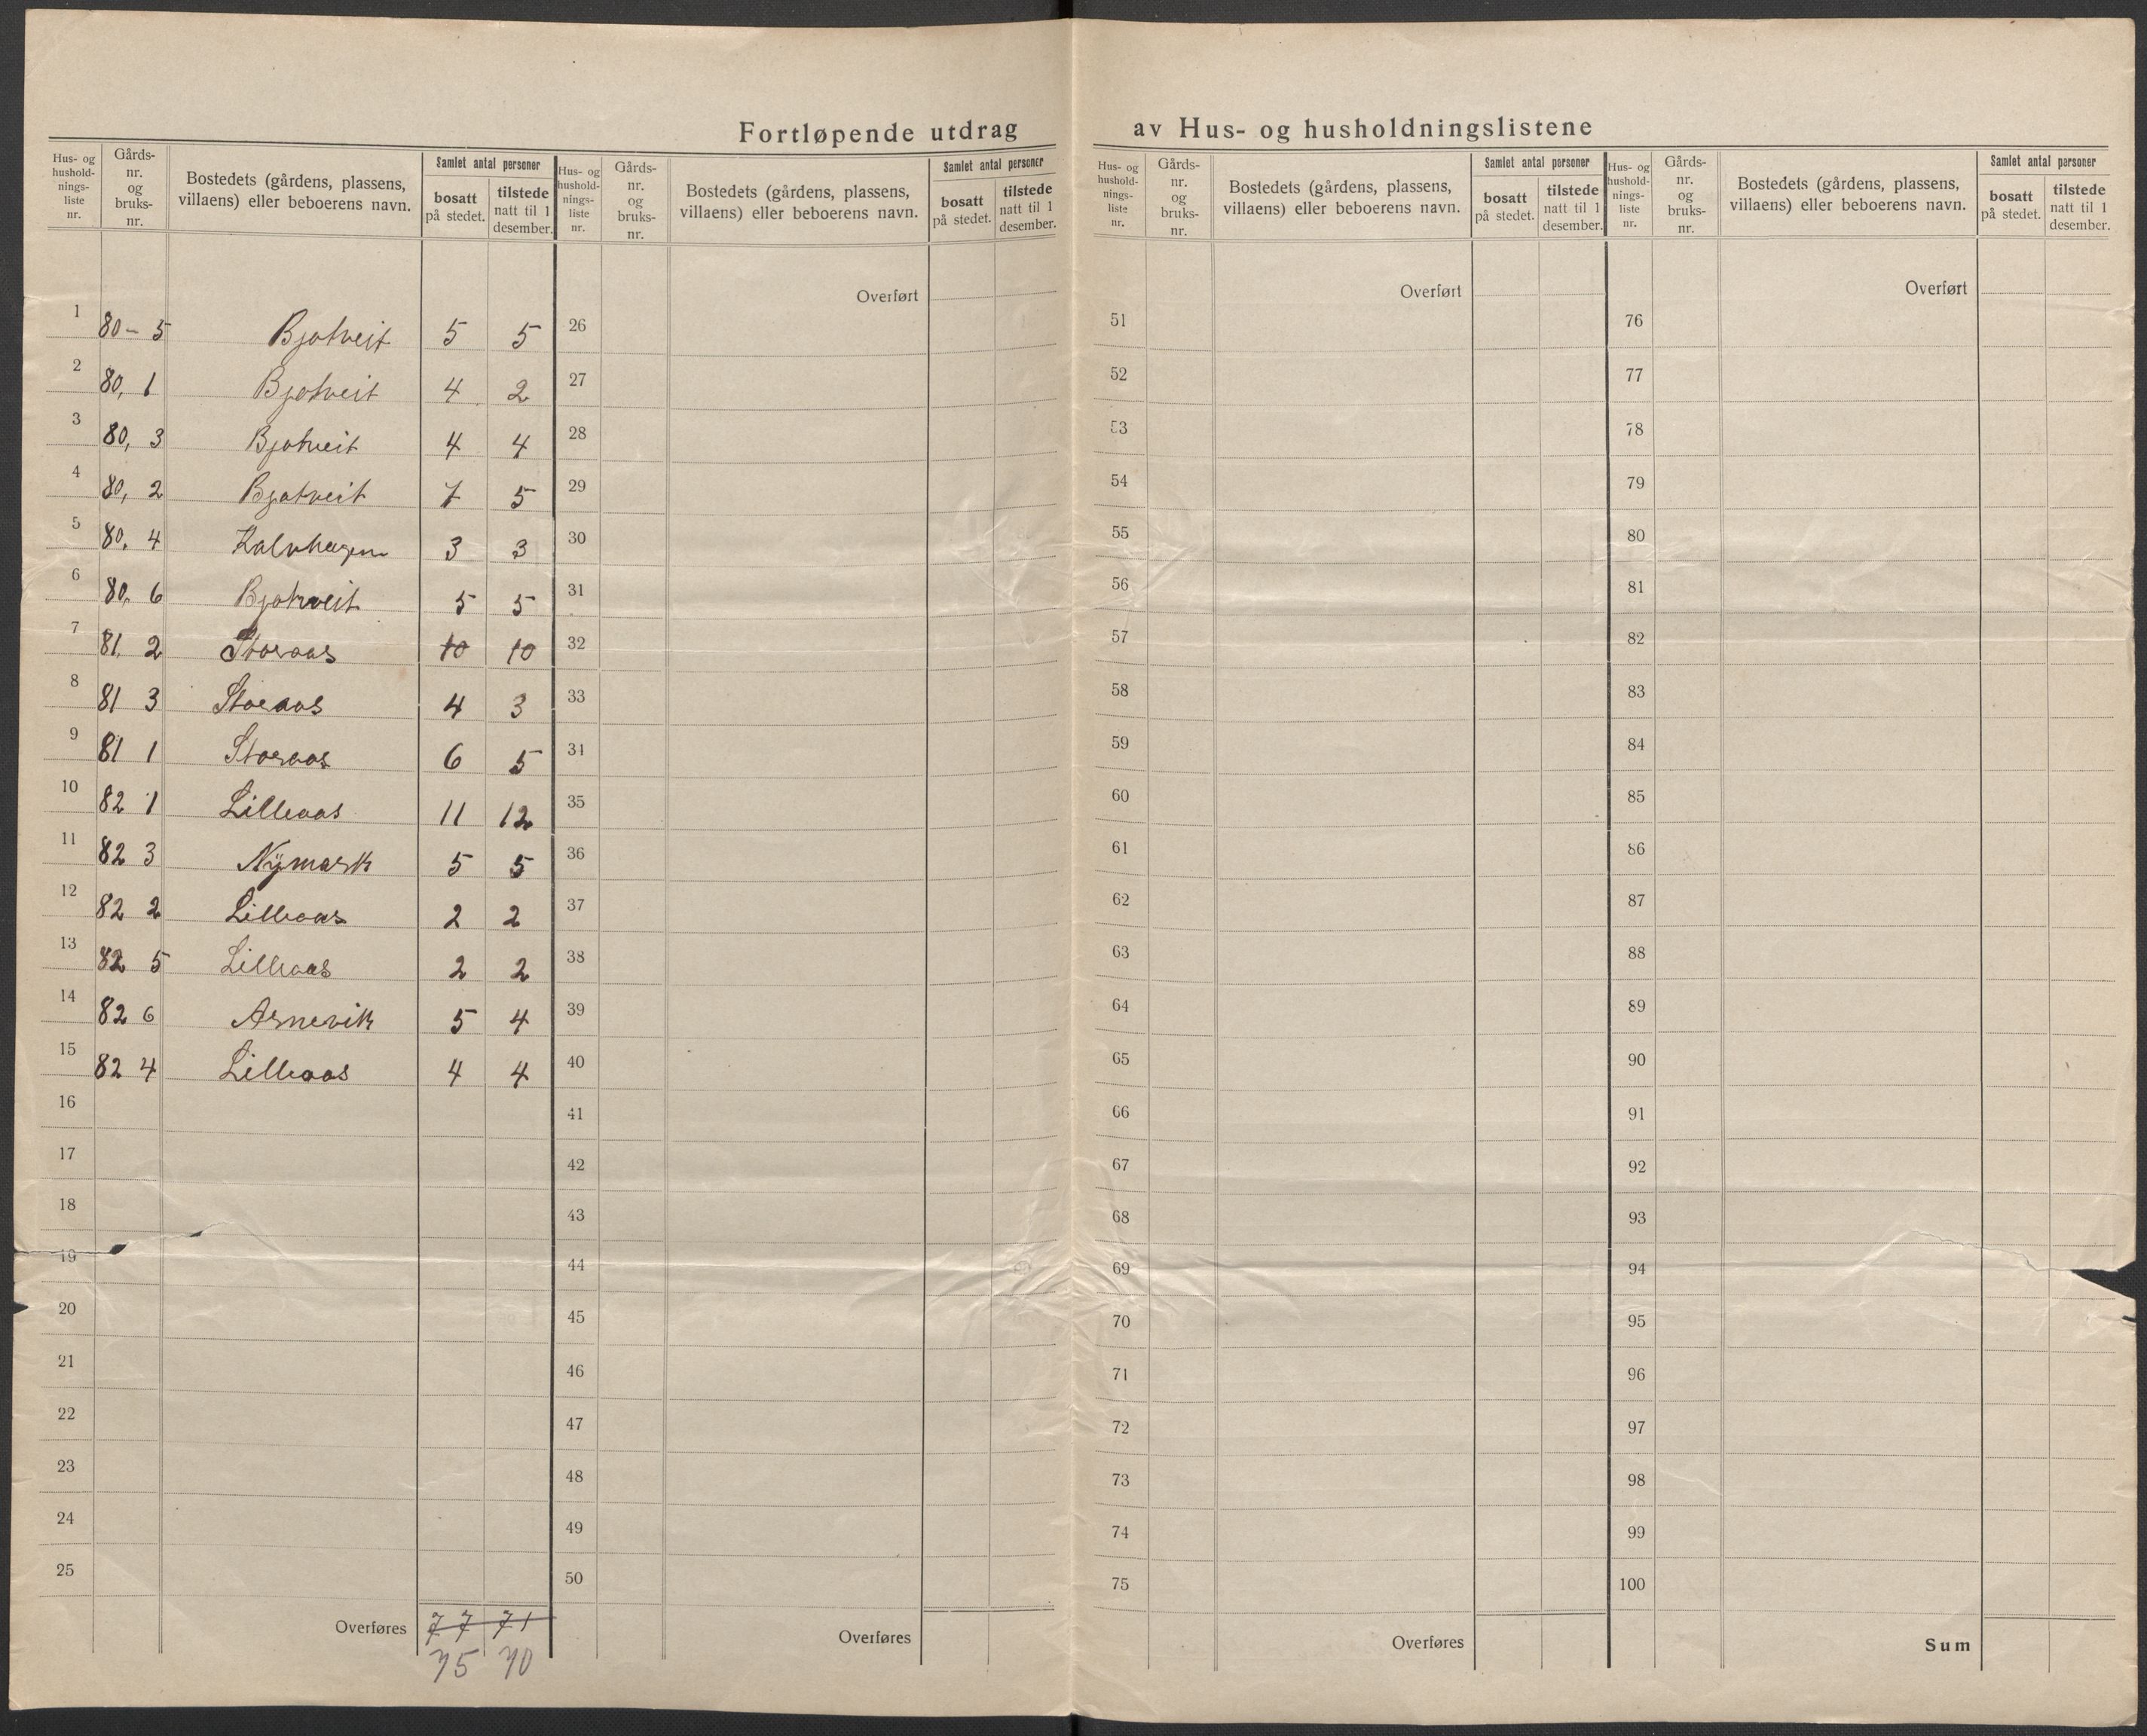 Fortløpende utdrag av Hus- og husholdningslistene
Hus- og husholdnings-liste nr. Gårds-nr. og bruks-nr. Bostedets (gårdens, plassens, villaens) eller beboerens navn. Samlet antal personer bosatt på stedet. tilstede natt til 1 desember.
Hus- og husholdnings-liste nr. Gårds-nr. og bruks-nr. Bostedets (gårdens, plassens, villaens) eller beboerens navn. Samlet antal personer bosatt på stedet. tilstede natt til 1 desember.
Hus- og husholdnings-liste nr. Gårds-nr. og bruks-nr. Bostedets (gårdens, plassens, villaens) eller beboerens navn. Samlet antal personer bosatt på stedet. tilstede natt til 1 desember.
Hus- og husholdnings-liste nr. Gårds-nr. og bruks-nr. Bostedets (gårdens, plassens, villaens) eller beboerens navn. Samlet antal personer bosatt på stedet. tilstede natt til 1 desember.
1 80-5 Bjotveit 5 5
2 80, 1 Bjotveit 4 2
3 80, 3 Bjotveit 4 4
4 80, 2 Bjotveit 7 5
5 80, 4 Kalvhagen 3 3
6 80, 6 Bjotveit 5 5
7 81, 2 Storaas 10 10
8 81 3 Storaas 4 3
9 81 1 Storaas 6 5
10 82 1 Lilleaas 11 12
11 82 3 Nymark 5 5
12 82 2 Lilleaas 2 2
13 82 5 Lilleaas 2 2
14 82 6 Arnevik 5 4
15 82 4 Lilleaas 4 4
16
17
18
19
20
21
22
23
24
25
Overføres 77 71
75 70
Overført
26
27
28
29
30
31
32
33
34
35
36
37
38
39
40
41
42
43
44
45
46
47
48
49
50
Overføres
Overført
51
52
53
54
55
56
57
58
59
60
61
62
63
64
65
66
67
68
69
70
71
72
73
74
75
Overføres
Overført
76
77
78
79
80
81
82
83
84
85
86
87
88
89
90
91
92
93
94
95
96
97
98
99
100
Sum